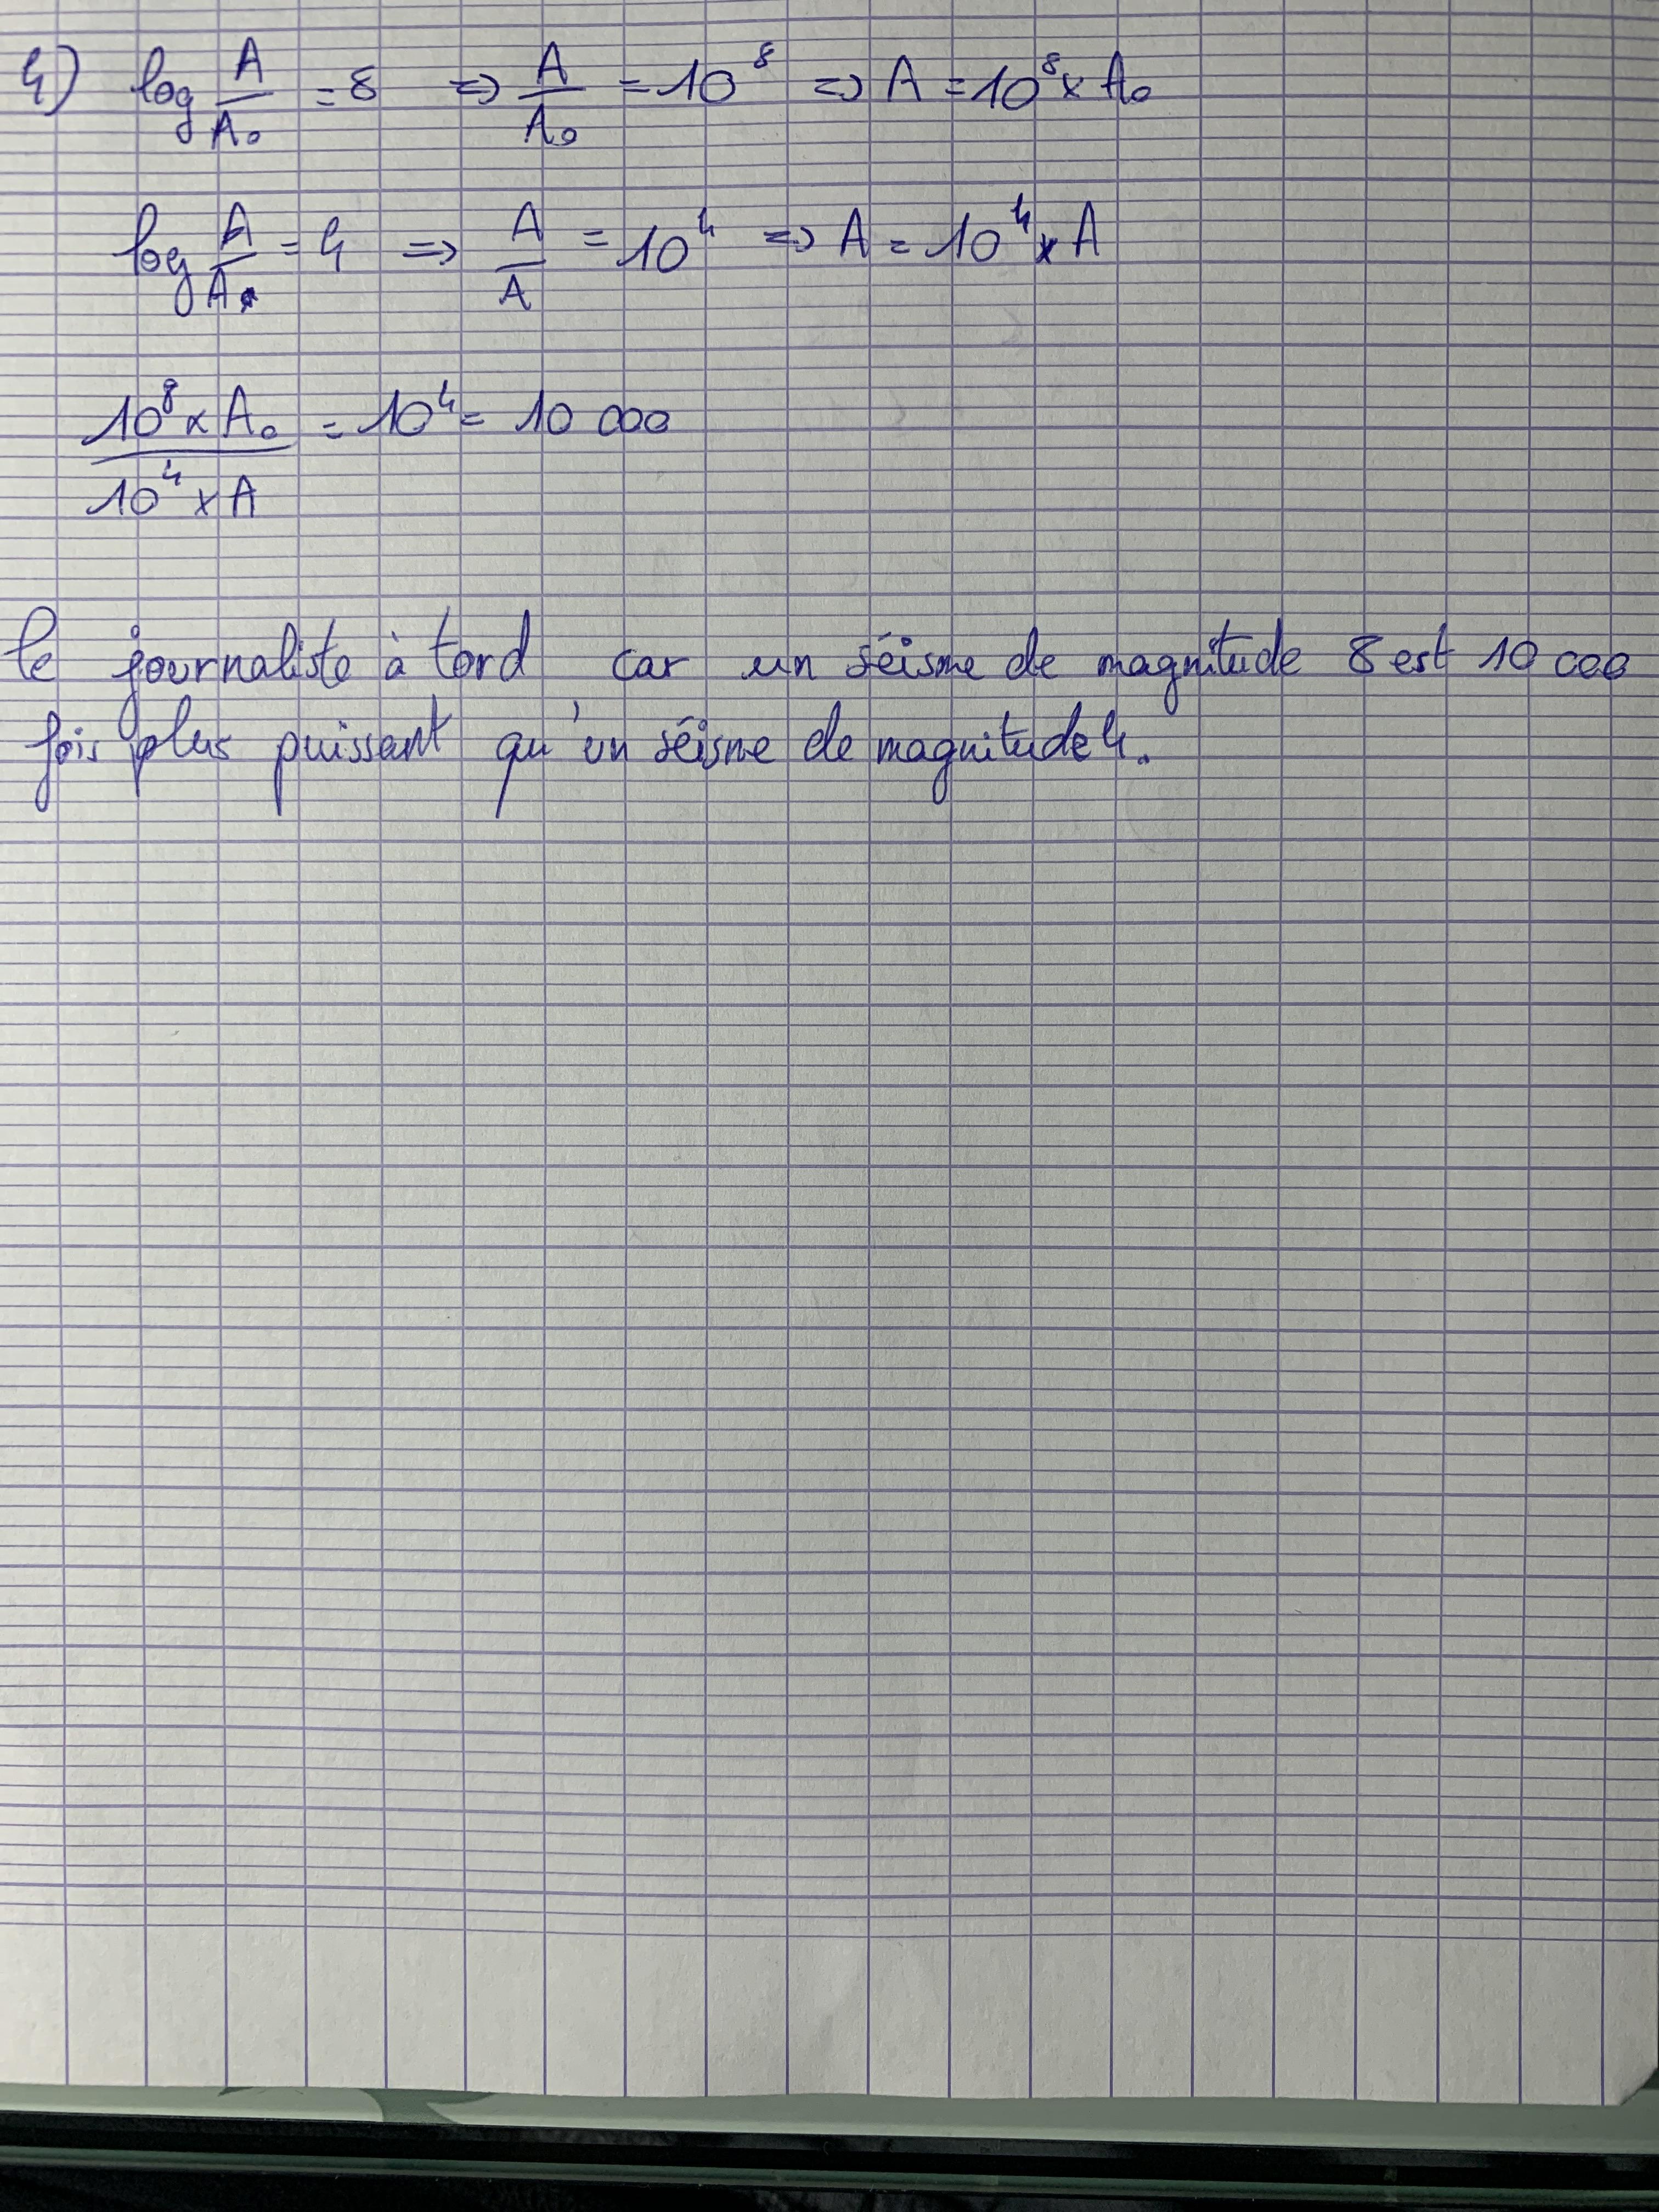 4) log A/A₀ = 8 => A/A₀ = 10⁸ => A = 10⁸ x A₀
log A/A₀ = 4 => A/A = 10⁴ => A = 10⁴ x A
10⁸ x A₀ / 10⁴ x A = 10⁴ = 10 000
le journaliste à tord car un séisme de magnitude 8 est 10 000
fois plus puissant qu'un séisme de magnitude 4.